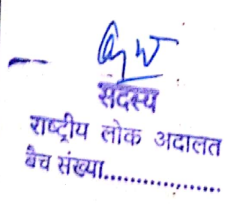 सदस्य
राष्ट्रीय लोक अदालत
बैंच संख्या..................